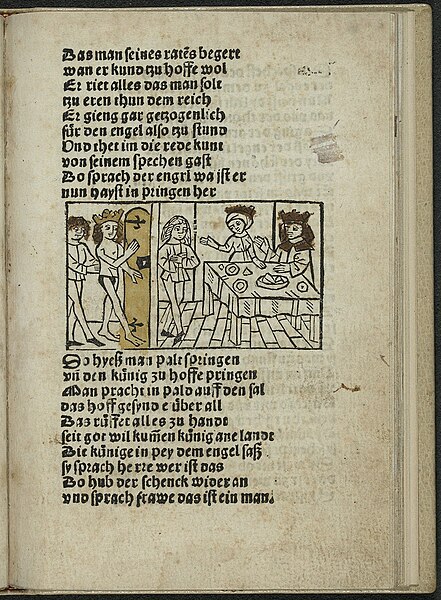 Das man seines ratẽs begert
wan er kund tzu hoffe wol
Er riet alles das man solt
tzu eren thun dem reich
Er gieng gar getzogenlich
für den engel also tzu stund
Vnd thet im die rede kunt
von seinem spechen gast
Do sprach der engrl wa ist er
nun hayst in pringen her
Do hyeß man palt springen
vñ den künig zu hoffe pringen
Man pracht in pald auff den sal
das hoff gesynde über all
Das rüffet alles zu handt
seit got wil kumen künig ane landt
Die künige in pey dem engel saß
sy sprach herre wer ist das
Do hub der schenck wider an
vnd sprach frawe das ist ein man.